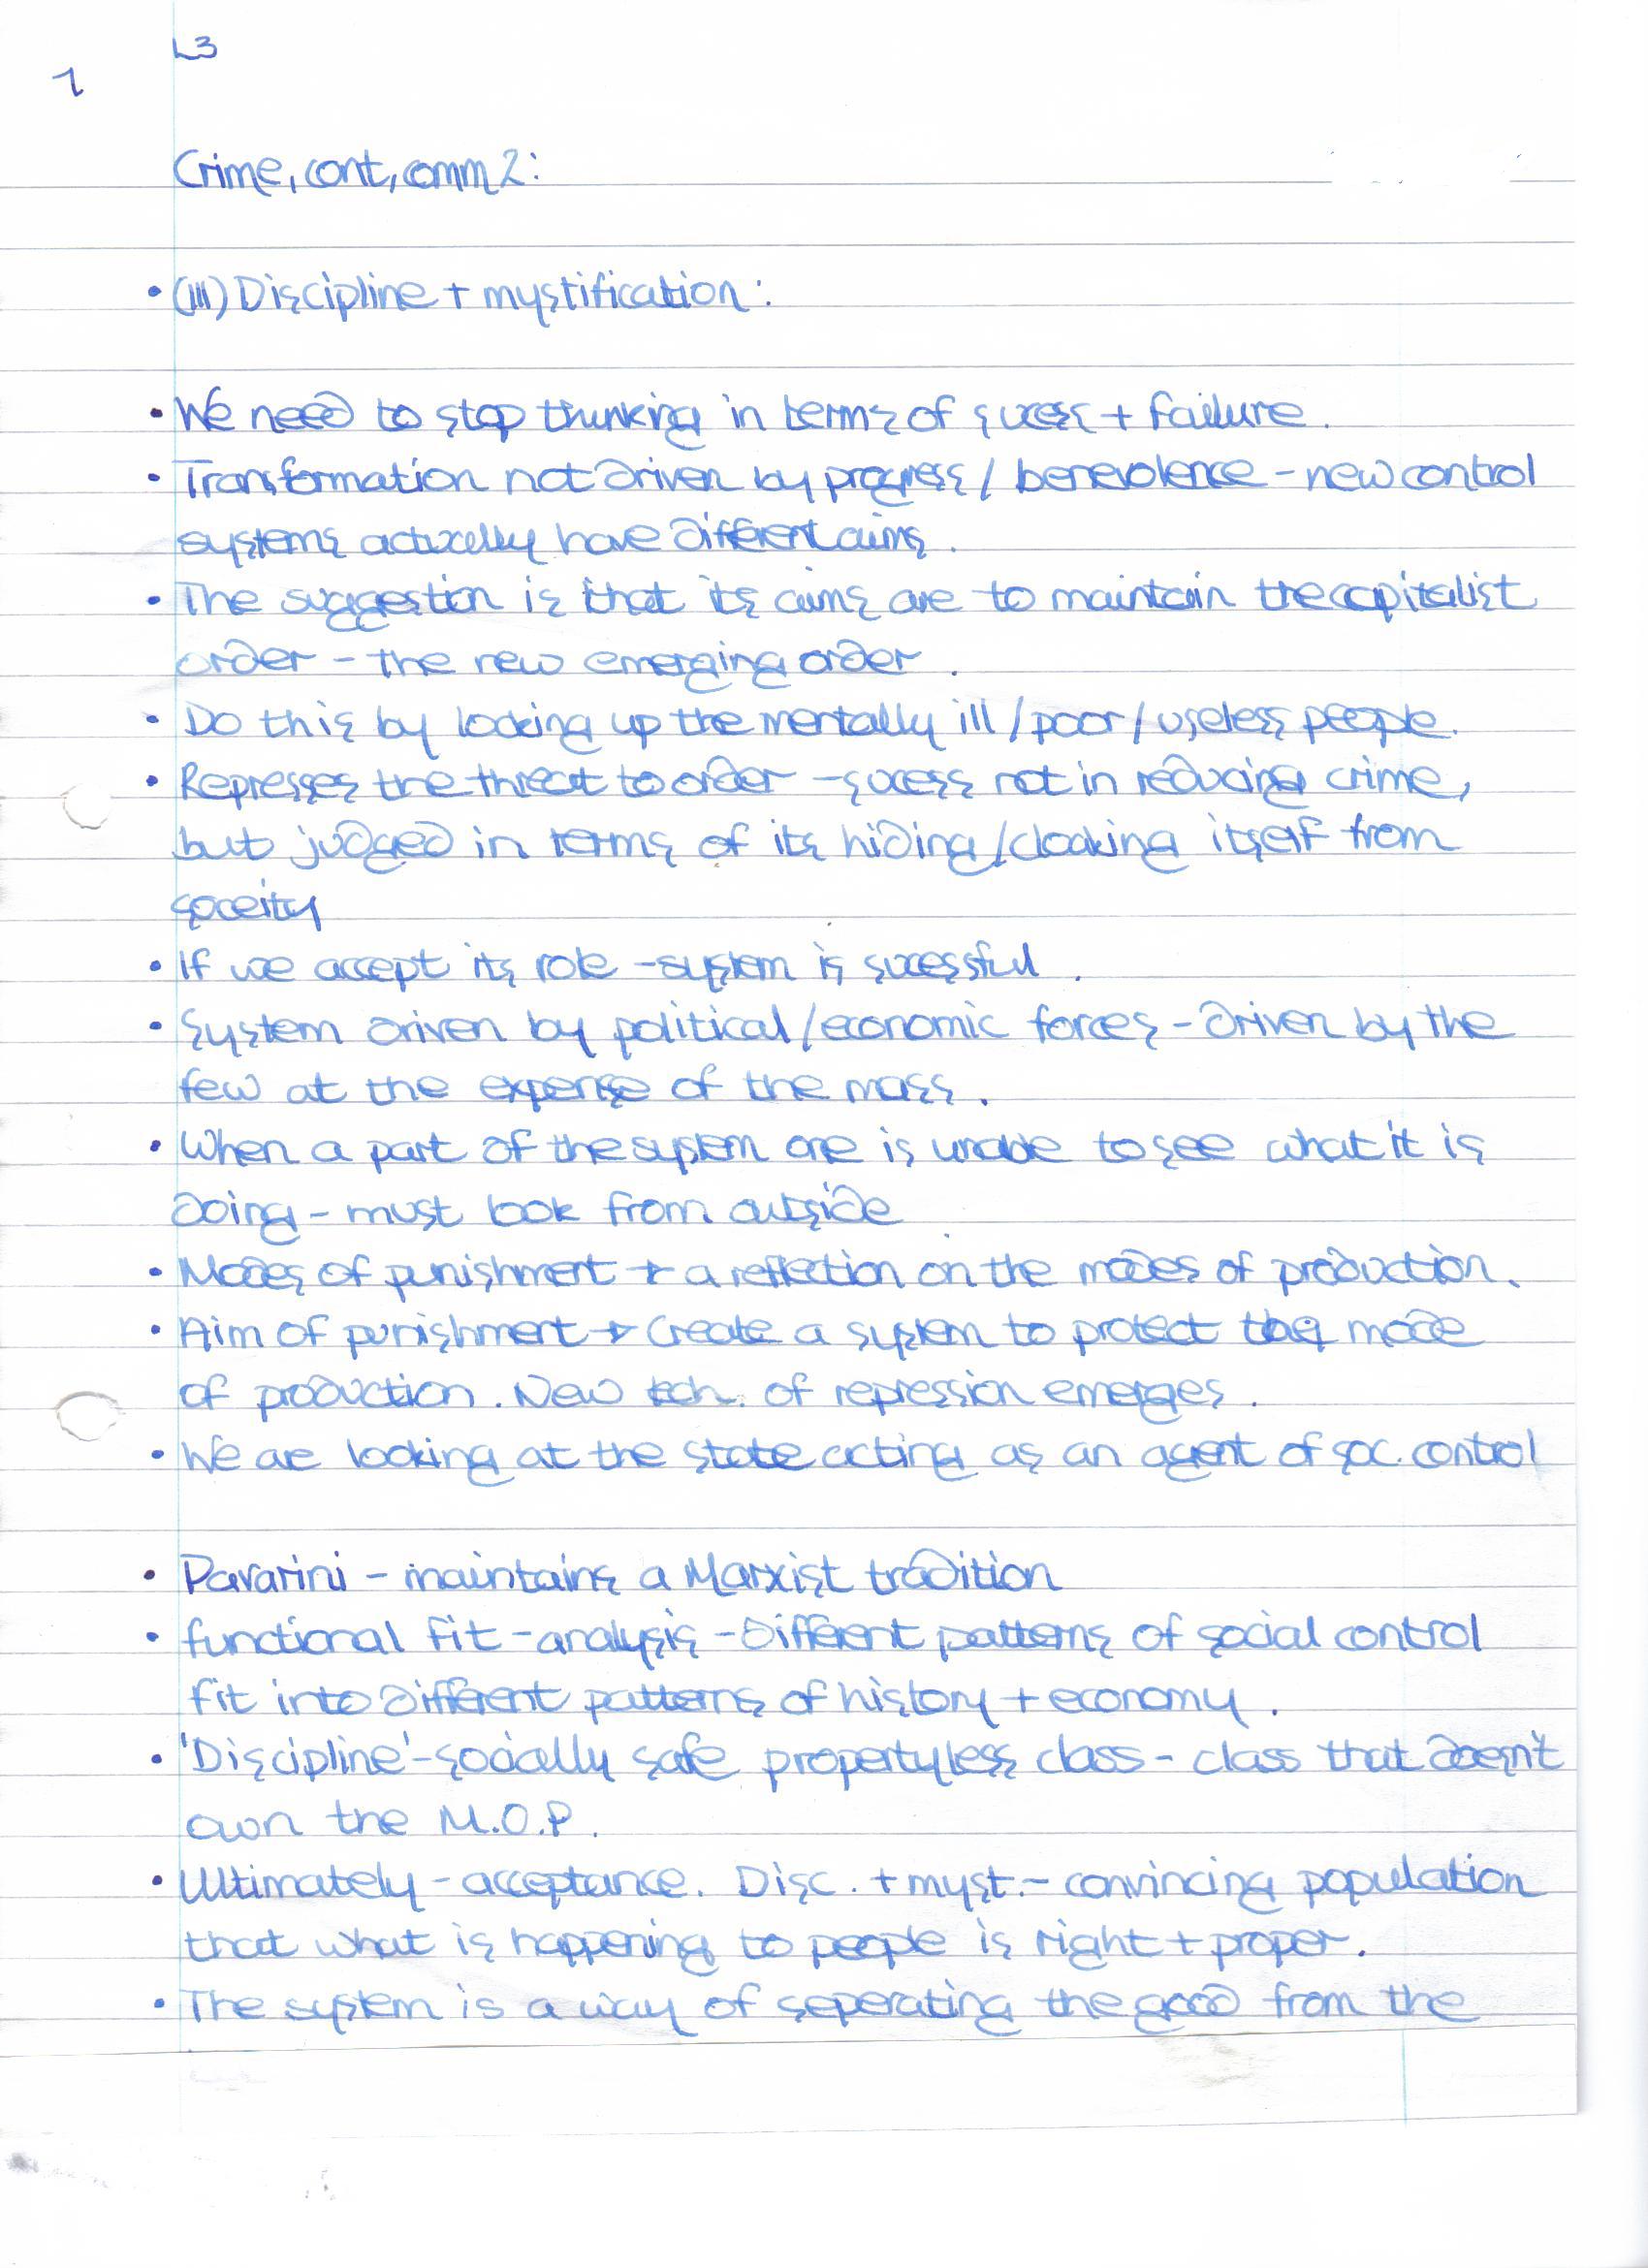 L3
1
Crime, cont, comm 2:
• (III) Discipline + mystification:
• We need to stop thinking in terms of sucess + failure.
• Transformation not driven by progress / benevolence - new control
systems actually have different aims.
• The suggestion is that its aims are to maintain the capitalist
order - the new emerging order.
• Do this by locking up the mentally ill / poor / useless people.
• Represses the threat to order - sucess not in reducing crime,
but judged in terms of its hiding / cloaking itself from
soceity
• If we accept its role - system is sucessful.
• System driven by political / economic forces - driven by the
few at the expense of the mass.
• When a part of the system one is unable to see what it is
doing - must look from outside
• Modes of punishment → a reflection on the modes of production.
• Aim of punishment → Create a system to protect the mode
of production. New tech. of repression emerges.
• We are looking at the state acting as an agent of soc. control
• Pavarini - maintains a Marxist tradition
• functional fit - analysis - Different patterns of social control
fit into different patterns of history + economy.
• 'Discipline' - socially safe propertyless class - class that doesn't
own the M.O.P.
• Ultimately - acceptance. Disc. + myst. - convincing population
that what is happening to people is right + proper.
• The system is a way of seperating the good from the